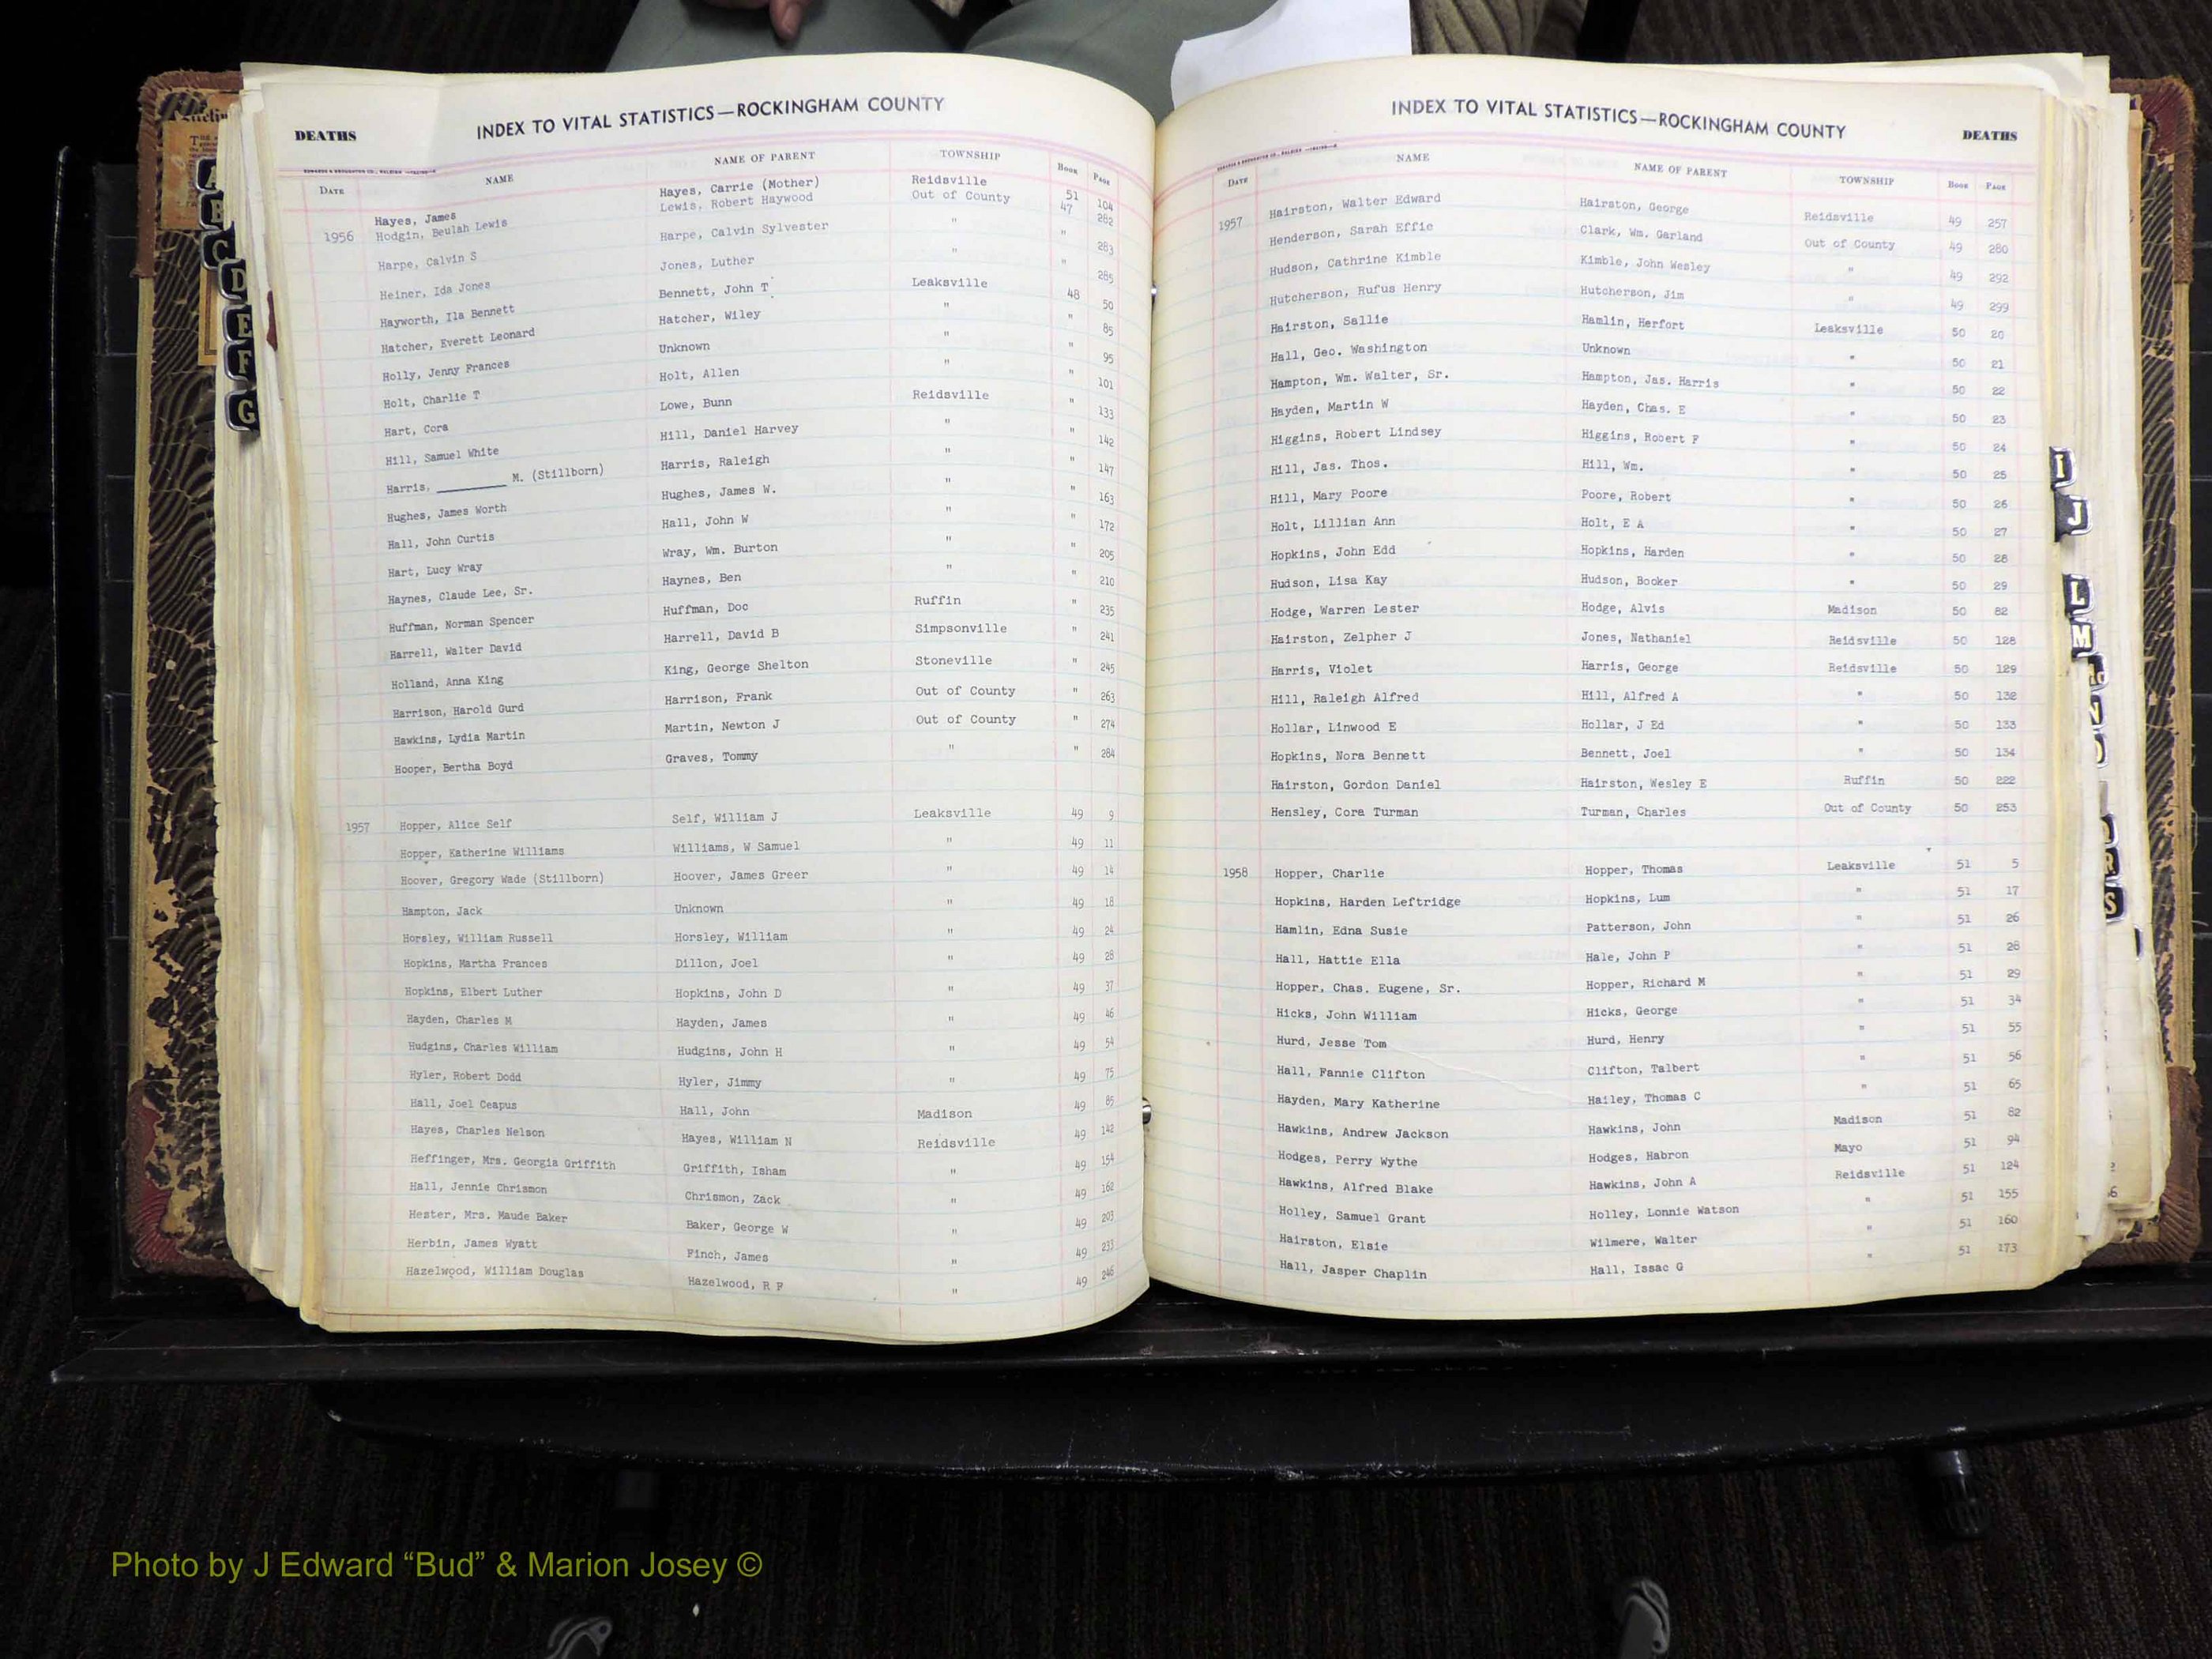 DEATHS
INDEX TO VITAL STATISTICS—ROCKINGHAM COUNTY
DATE NAME NAME OF PARENT TOWNSHIP BOOK PAGE
Hayes, James Hayes, Carrie (Mother) Reidsville 51 104
1956 Hodgin, Beulah Lewis Lewis, Robert Haywood Out of County 47 282
Harpe, Calvin S Harpe, Calvin Sylvester " " 283
Heiner, Ida Jones Jones, Luther " " 285
Hayworth, Ila Bennett Bennett, John T Leaksville 48 50
Hatcher, Everett Leonard Hatcher, Wiley " " 85
Holly, Jenny Frances Unknown " " 95
Holt, Charlie T Holt, Allen " " 101
Hart, Cora Lowe, Bunn Reidsville " 133
Hill, Samuel White Hill, Daniel Harvey " " 142
Harris, ________ M. (Stillborn) Harris, Raleigh " " 147
Hughes, James Worth Hughes, James W. " " 163
Hall, John Curtis Hall, John W " " 172
Hart, Lucy Wray Wray, Wm. Burton " " 205
Haynes, Claude Lee, Sr. Haynes, Ben " " 210
Huffman, Norman Spencer Huffman, Doc Ruffin " 235
Harrell, Walter David Harrell, David B Simpsonville " 241
Holland, Anna King King, George Shelton Stoneville " 245
Harrison, Harold Gurd Harrison, Frank Out of County " 263
Hawkins, Lydia Martin Martin, Newton J Out of County " 274
Hooper, Bertha Boyd Graves, Tommy " " 284
1957 Hopper, Alice Self Self, William J Leaksville 49 9
Hopper, Katherine Williams Williams, W Samuel " 49 11
Hoover, Gregory Wade (Stillborn) Hoover, James Greer " 49 14
Hampton, Jack Unknown " 49 18
Horsley, William Russell Horsley, William " 49 24
Hopkins, Martha Frances Dillon, Joel " 49 28
Hopkins, Elbert Luther Hopkins, John D " 49 37
Hayden, Charles M Hayden, James " 49 46
Hudgins, Charles William Hudgins, John H " 49 54
Hyler, Robert Dodd Hyler, Jimmy " 49 75
Hall, Joel Ceapus Hall, John Madison 49 85
Hayes, Charles Nelson Hayes, William N Reidsville 49 142
Heffinger, Mrs. Georgia Griffith Griffith, Isham " 49 154
Hall, Jennie Chrismon Chrismon, Zack " 49 162
Hester, Mrs. Maude Baker Baker, George W " 49 203
Herbin, James Wyatt Finch, James " 49 233
Hazelwood, William Douglas Hazelwood, R F " 49 246
INDEX TO VITAL STATISTICS—ROCKINGHAM COUNTY
DEATHS
DATE NAME NAME OF PARENT TOWNSHIP BOOK PAGE
1957 Hairston, Walter Edward Hairston, George Reidsville 49 257
Henderson, Sarah Effie Clark, Wm. Garland Out of County 49 280
Hudson, Cathrine Kimble Kimble, John Wesley " 49 292
Hutcherson, Rufus Henry Hutcherson, Jim " 49 299
Hairston, Sallie Hamlin, Herfort Leaksville 50 20
Hall, Geo. Washington Unknown " 50 21
Hampton, Wm. Walter, Sr. Hampton, Jas. Harris " 50 22
Hayden, Martin W Hayden, Chas. E " 50 23
Higgins, Robert Lindsey Higgins, Robert F " 50 24
Hill, Jas. Thos. Hill, Wm. " 50 25
Hill, Mary Poore Poore, Robert " 50 26
Holt, Lillian Ann Holt, E A " 50 27
Hopkins, John Edd Hopkins, Harden " 50 28
Hudson, Lisa Kay Hudson, Booker " 50 29
Hodge, Warren Lester Hodge, Alvis Madison 50 82
Hairston, Zelpher J Jones, Nathaniel Reidsville 50 128
Harris, Violet Harris, George Reidsville 50 129
Hill, Raleigh Alfred Hill, Alfred A " 50 132
Hollar, Linwood E Hollar, J Ed " 50 133
Hopkins, Nora Bennett Bennett, Joel " 50 134
Hairston, Gordon Daniel Hairston, Wesley E Ruffin 50 222
Hensley, Cora Turman Turman, Charles Out of County 50 253
1958 Hopper, Charlie Hopper, Thomas Leaksville 51 5
Hopkins, Harden Leftridge Hopkins, Lum " 51 17
Hamlin, Edna Susie Patterson, John " 51 26
Hall, Hattie Ella Hale, John P " 51 28
Hopper, Chas. Eugene, Sr. Hopper, Richard M " 51 29
Hicks, John William Hicks, George " 51 34
Hurd, Jesse Tom Hurd, Henry " 51 55
Hall, Fannie Clifton Clifton, Talbert " 51 56
Hayden, Mary Katherine Hailey, Thomas C " 51 65
Hawkins, Andrew Jackson Hawkins, John Madison 51 82
Hodges, Perry Wythe Hodges, Habron Mayo 51 94
Hawkins, Alfred Blake Hawkins, John A Reidsville 51 124
Holley, Samuel Grant Holley, Lonnie Watson " 51 155
Hairston, Elsie Wilmere, Walter " 51 160
Hall, Jasper Chaplin Hall, Issac G " 51 173
A
B
C
D
E
F
G
I
J
L
M
N
R
S
Photo by J Edward “Bud” & Marion Josey ©